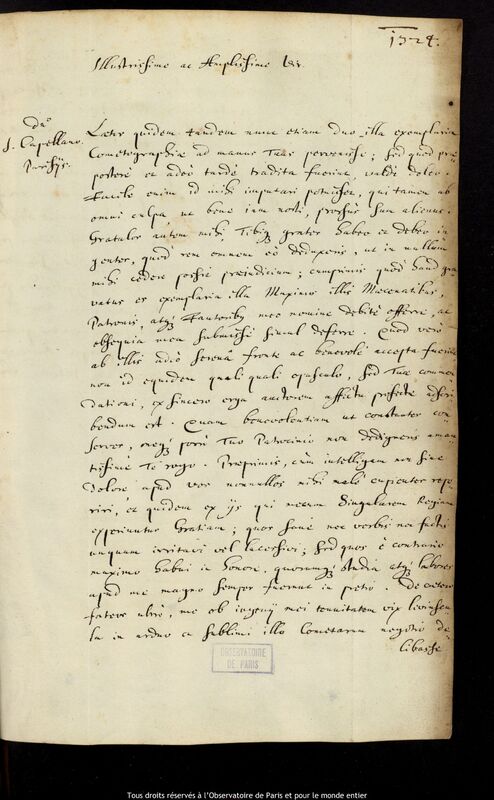 1324.
Illustrissime ac Amplissime Vir.
Dno
J. Capellano.
Parisijs.
Lætor quidem tandem nunc etiam duo illa exemplaria
Cometographiæ ad manus Tuas pervenisse; sed quod præ
postere et adeò tardè tradita fuerint, valdè doleo.
Facile enim id mihi imputari potuisset, qui tamen ab
omni culpa, ut bene iam nosti, prorsus sum alienus.
Gratulor autem mihi, Tibiq; grates habeo et debeo in
gentes, quod rem omnem eò deduxeris, ut in nullum
mihi cedere possit præjudicium; cumprimis quòd haud gra
vatus es exemplaria illa Maximis illis Mæcenatibus,
Patronis, atq; Fautoribus meo nomine debitè offerre, ac
obsequia mea submissè simul deferre. Quod verò
ab illis adeò serenâ fronte ac benevolè accepta fuerint
non id equidem quali quali opusculo, sed Tuæ commen
dationi, et sincero erga auctorem affectu profectò adscri
bendum est. Quam benevolentiam ut constanter con
serves, meq; porrò Tuo Patrocinio non dedigneris aman
tissimè Te rogo. Præprimis, cùm intelligam non sine
dolore apud vos nonnullos mihi malè cupientes repe
riri, et quidem ex ijs qui mecum Singularem Regiam
experiuntur Gratiam; quos sanè nec verbis nec factis
unquam irritavi vel lacessivi; sed quos è contrario
maximo habui in honore, quorumq; studia atq; labores
apud me magno semper fuerunt in pretio. De cætero
fateor ultrò, me ob ingenij mei tenuitatem vix
in arduo et sublimi illo Cometarum negotio de
libasse
OBSERVATOIRE
DE PARIS
Tous droits réservés à l'Observatoire de Paris et pour le monde entier